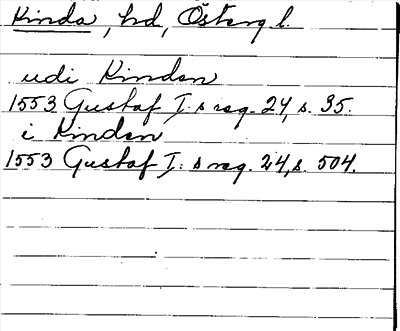 Kinda, hd, Östergl.
udi Kindan
1553 Gustaf I:s reg. 24, s. 35.
i Kindan
1553 Gustaf I:s reg. 24, s. 504.